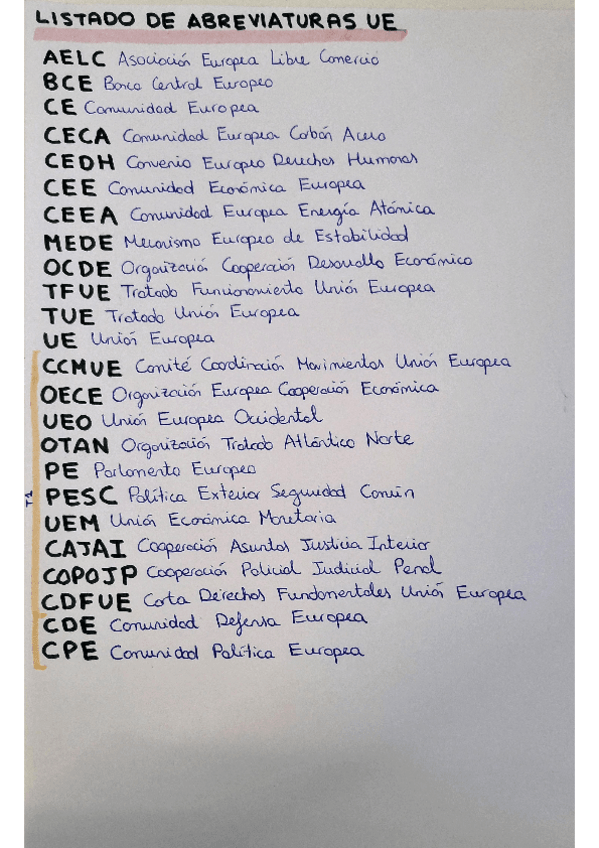 LISTADO DE ABREVIATURAS UE
AELC Asociación Europea Libre Comercio
BCE Banco Central Europeo
CE Comunidad Europea
CECA Comunidad Europea Carbón Acero
CEDH Convenio Europeo Derechos Humanos
CEE Comunidad Económica Europea
CEEA Comunidad Europea Energía Atómica
MEDE Mecanismo Europeo de Estabilidad
OCDE Organización Cooperación Desarrollo Económico
TFUE Tratado Funcionamiento Unión Europea
TUE Tratado Unión Europea
UE Unión Europea
CCMUE Comité Coordinación Movimientos Unión Europea
OECE Organización Europea Cooperación Económica
UEO Unión Europea Occidental
OTAN Organización Tratado Atlántico Norte
PE Parlamento Europeo
PESC Política Exterior Seguridad Común
UEM Unión Económica Monetaria
CAJAI Cooperación Asuntos Justicia Interior
COPOJP Cooperación Policial Judicial Penal
CDFUE Carta Derechos Fundamentales Unión Europea
CDE Comunidad Defensa Europea
CPE Comunidad Política Europea